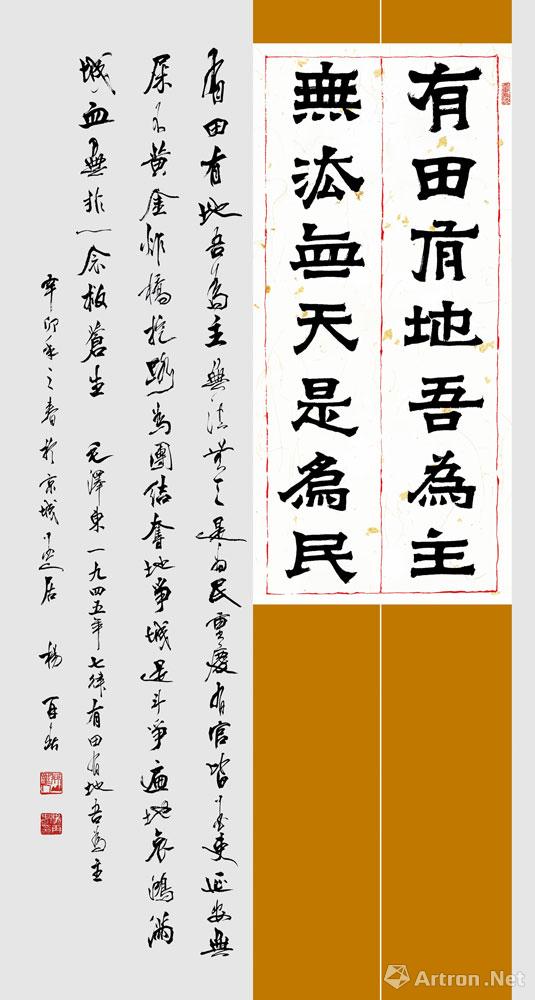 有田有地吾為主
無法無天是為民
有田有地吾為主無法無天是為民重慶有官皆墨吏延安無
屎不黃金炸橋挖路為團結奪地爭城是斗爭遍地哀鴻滿
城血無非一念救蒼生 毛澤東一九四五年七律有田有地吾為主
辛卯年之春於京城居 楊
Artron.Net